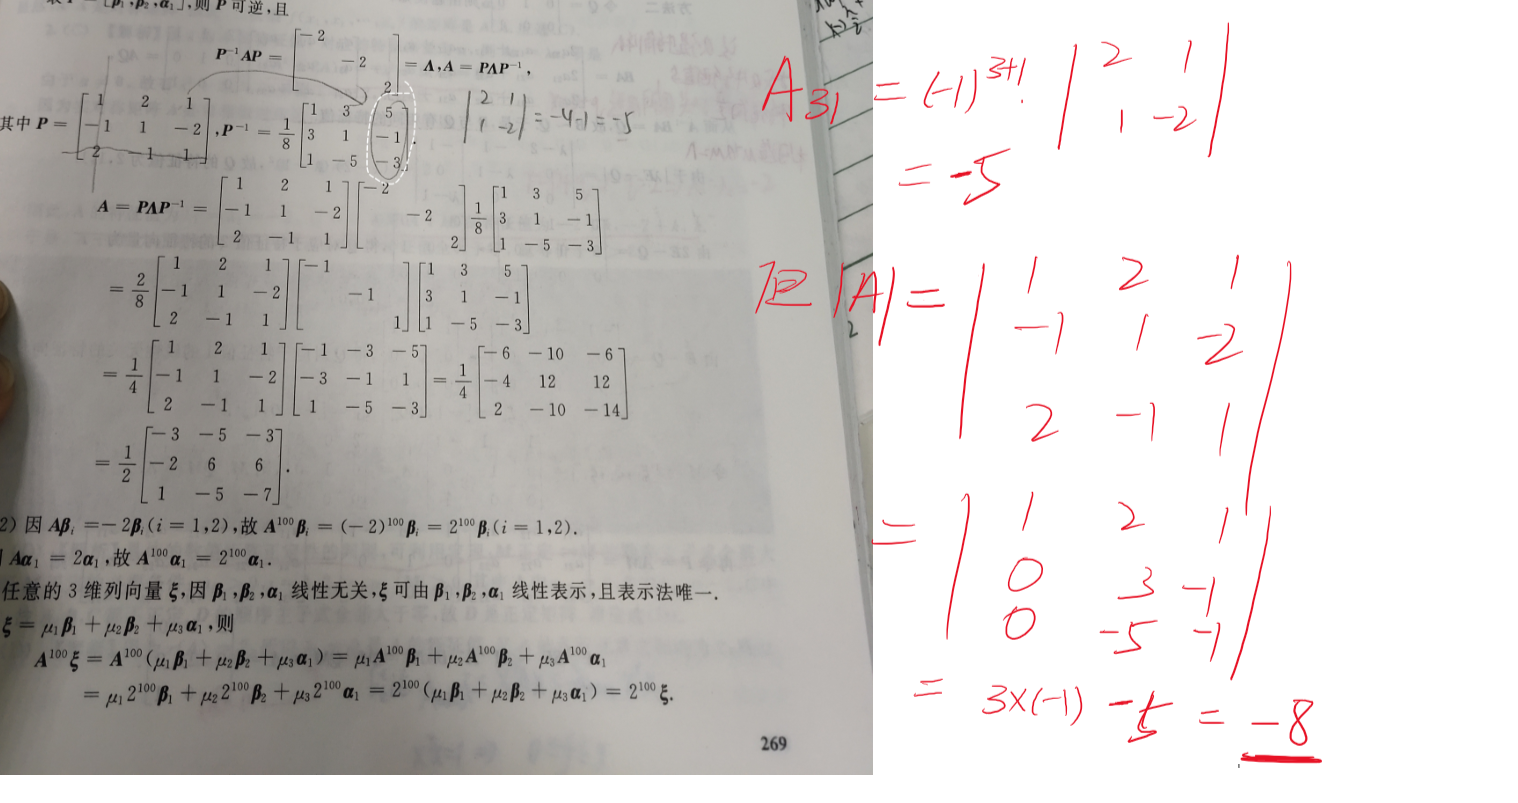 [β₁,β₂,α₁],则 P 可逆,且
P⁻¹AP = [−2
−2
2] = Λ, A = PΛP⁻¹,
其中 P = [1 2 1
−1 1 −2
2 −1 1], P⁻¹ = 1/8 [1 3 5
3 1 −1
1 −5 −3].
|2 1
1 −2| = −4−1 = −5
A = PΛP⁻¹ = [1 2 1
−1 1 −2
2 −1 1] [−2
−2
2] 1/8 [1 3 5
3 1 −1
1 −5 −3]
= 2/8 [1 2 1
−1 1 −2
2 −1 1] [−1
−1
1] [1 3 5
3 1 −1
1 −5 −3]
= 1/4 [1 2 1
−1 1 −2
2 −1 1] [−1 −3 −5
−3 −1 1
1 −5 −3] = 1/4 [−6 −10 −6
−4 12 12
2 −10 −14]
= 1/2 [−3 −5 −3
−2 6 6
1 −5 −7].
2) 因 Aβᵢ = −2βᵢ(i = 1,2),故 A¹⁰⁰βᵢ = (−2)¹⁰⁰βᵢ = 2¹⁰⁰βᵢ(i = 1,2).
Aα₁ = 2α₁,故 A¹⁰⁰α₁ = 2¹⁰⁰α₁.
任意的 3 维列向量 ξ,因 β₁,β₂,α₁ 线性无关,ξ 可由 β₁,β₂,α₁ 线性表示,且表示法唯一.
ξ = μ₁β₁ + μ₂β₂ + μ₃α₁,则
A¹⁰⁰ξ = A¹⁰⁰(μ₁β₁ + μ₂β₂ + μ₃α₁) = μ₁A¹⁰⁰β₁ + μ₂A¹⁰⁰β₂ + μ₃A¹⁰⁰α₁
= μ₁2¹⁰⁰β₁ + μ₂2¹⁰⁰β₂ + μ₃2¹⁰⁰α₁ = 2¹⁰⁰(μ₁β₁ + μ₂β₂ + μ₃α₁) = 2¹⁰⁰ξ.
269
A₃₁ = (−1)³⁺¹ |2 1
1 −2|
= −5
|A| = |1 2 1
−1 1 −2
2 −1 1|
= |1 2 1
0 3 −1
0 −5 −1|
= 3×(−1) −5 = −8